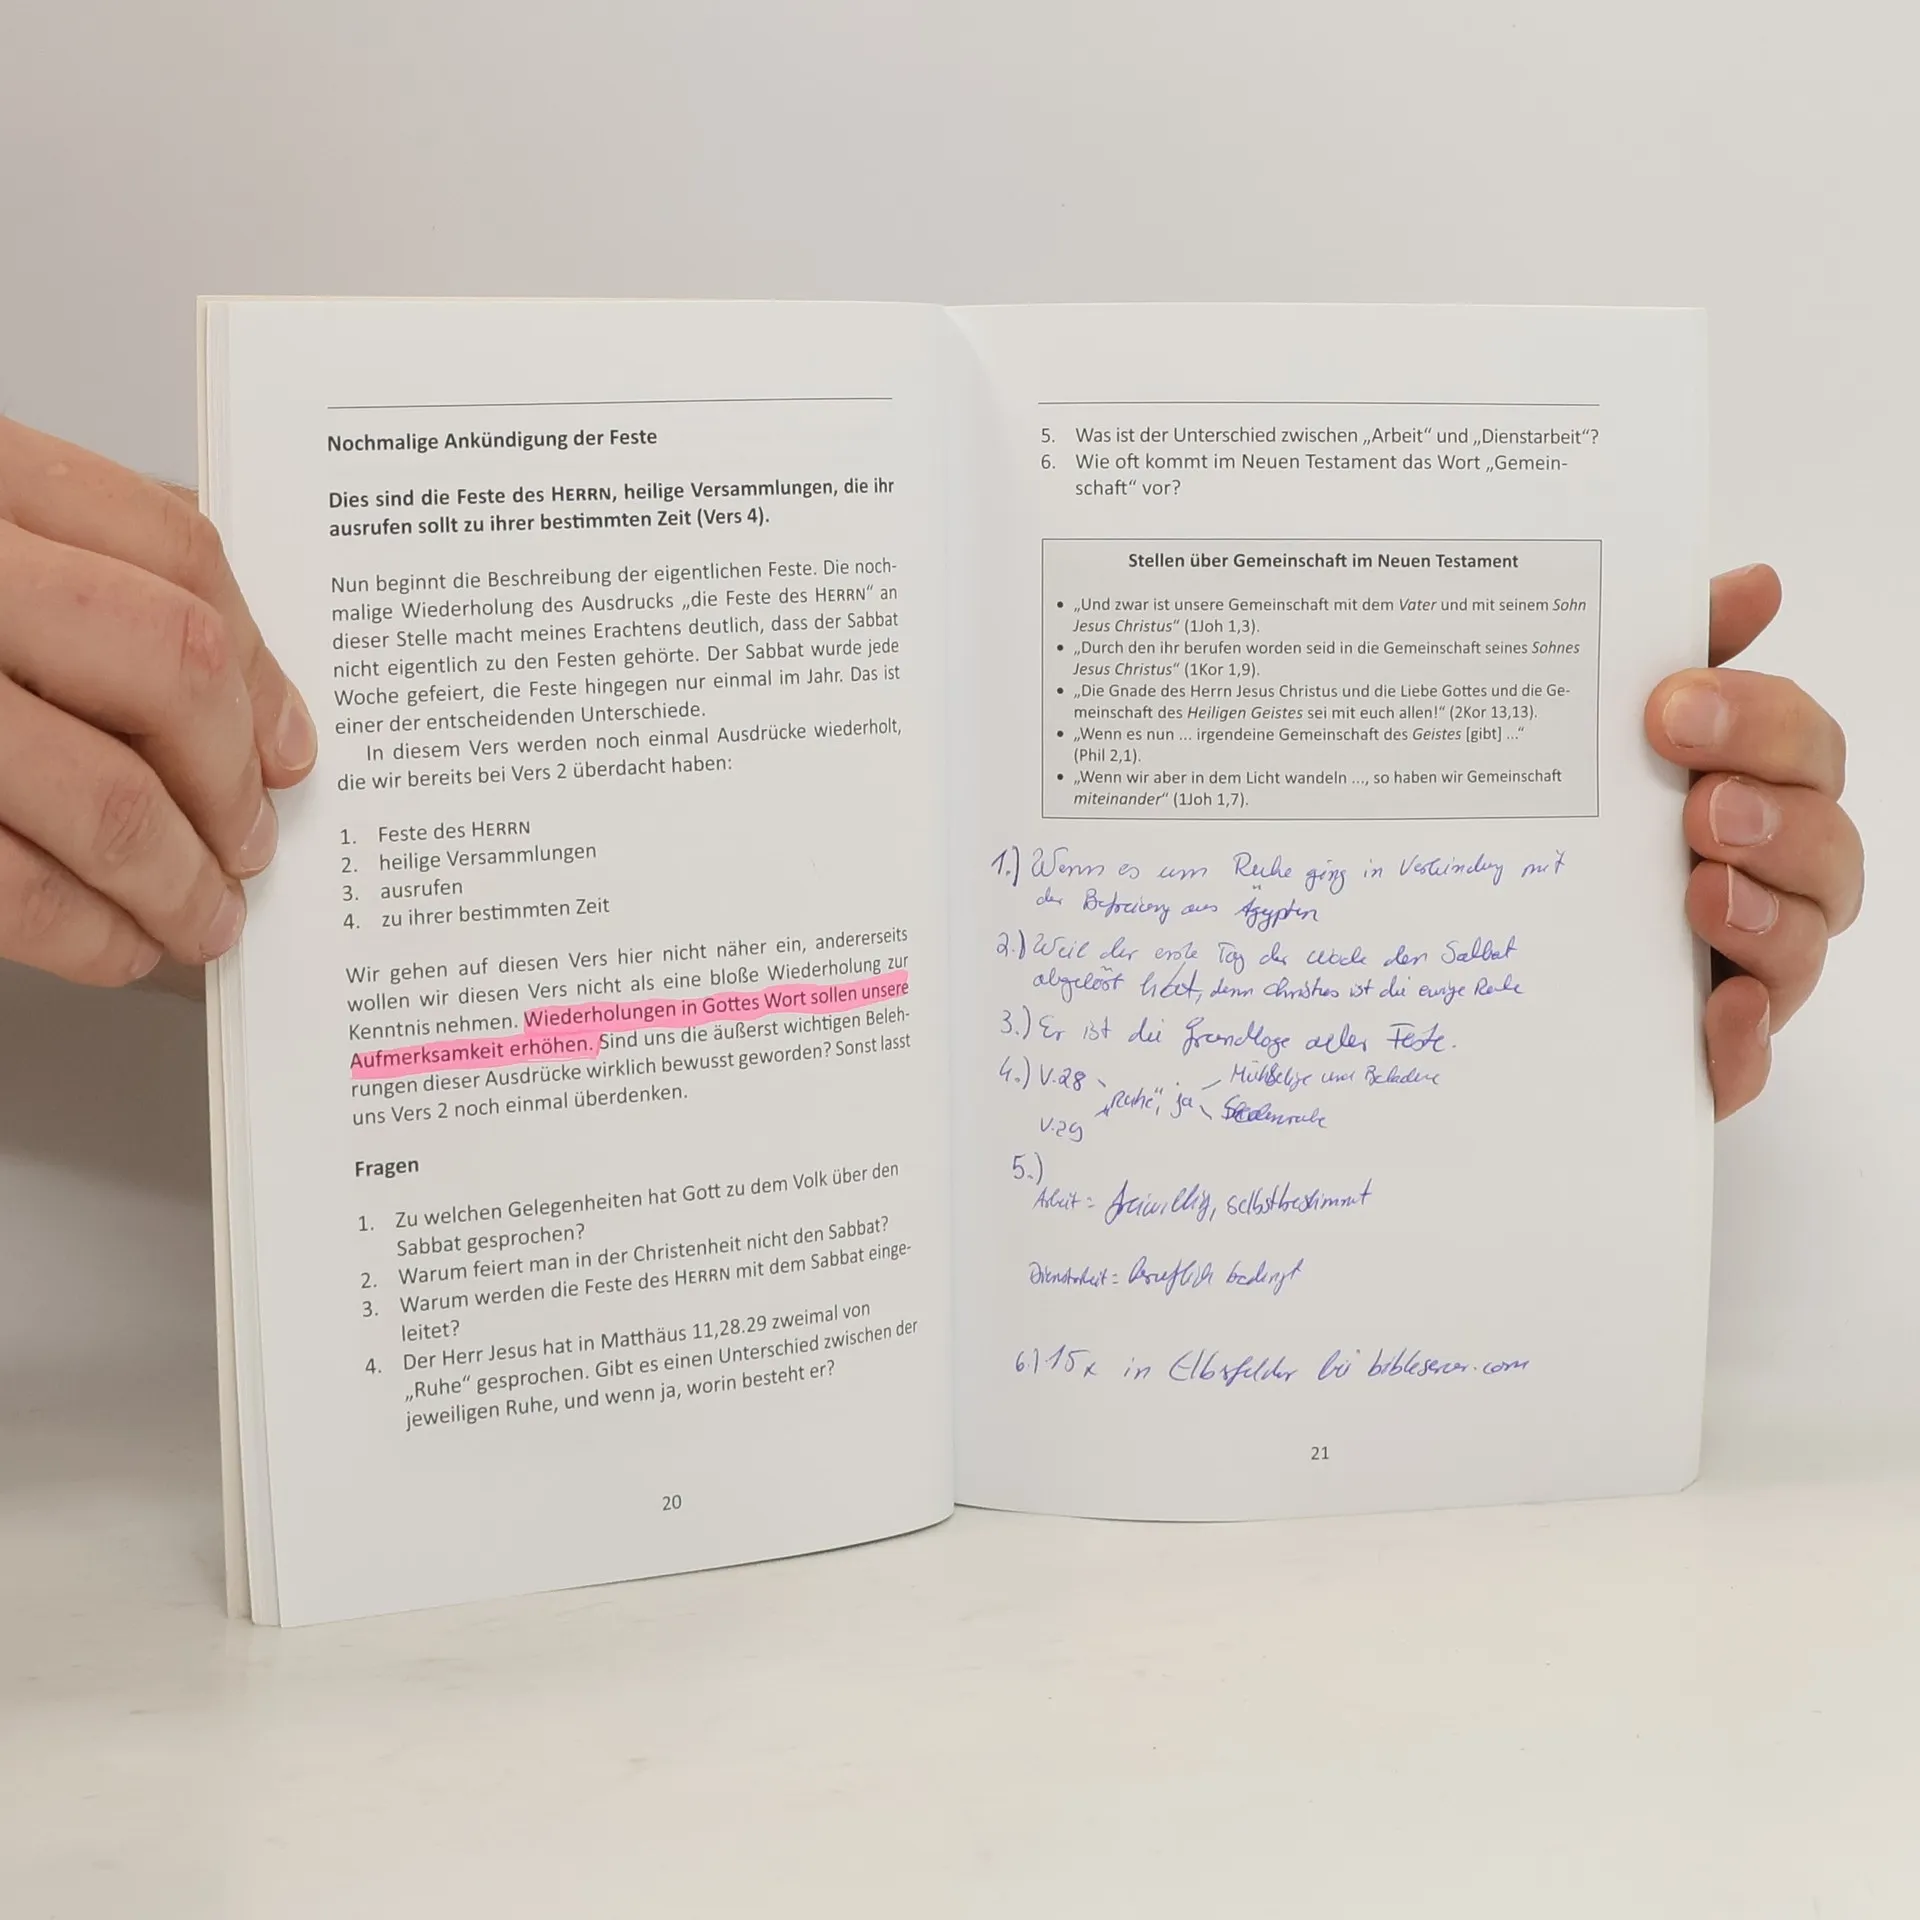 Nochmalige Ankündigung der Feste
Dies sind die Feste des HERRN, heilige Versammlungen, die ihr
ausrufen sollt zu ihrer bestimmten Zeit (Vers 4).
Nun beginnt die Beschreibung der eigentlichen Feste. Die noch-
malige Wiederholung des Ausdrucks „die Feste des HERRN“ an
dieser Stelle macht meines Erachtens deutlich, dass der Sabbat
nicht eigentlich zu den Festen gehörte. Der Sabbat wurde jede
Woche gefeiert, die Feste hingegen nur einmal im Jahr. Das ist
einer der entscheidenden Unterschiede.
In diesem Vers werden noch einmal Ausdrücke wiederholt,
die wir bereits bei Vers 2 überdacht haben:
1. Feste des HERRN
2. heilige Versammlungen
3. ausrufen
4. zu ihrer bestimmten Zeit
Wir gehen auf diesen Vers hier nicht näher ein, andererseits
wollen wir diesen Vers nicht als eine bloße Wiederholung zur
Kenntnis nehmen. Wiederholungen in Gottes Wort sollen unsere
Aufmerksamkeit erhöhen. Sind uns die äußerst wichtigen Beleh-
rungen dieser Ausdrücke wirklich bewusst geworden? Sonst lasst
uns Vers 2 noch einmal überdenken.
Fragen
1. Zu welchen Gelegenheiten hat Gott zu dem Volk über den
Sabbat gesprochen?
2. Warum feiert man in der Christenheit nicht den Sabbat?
3. Warum werden die Feste des HERRN mit dem Sabbat einge-
leitet?
4. Der Herr Jesus hat in Matthäus 11,28.29 zweimal von
„Ruhe“ gesprochen. Gibt es einen Unterschied zwischen der
jeweiligen Ruhe, und wenn ja, worin besteht er?
20
5. Was ist der Unterschied zwischen „Arbeit“ und „Dienstarbeit“?
6. Wie oft kommt im Neuen Testament das Wort „Gemein-
schaft“ vor?
Stellen über Gemeinschaft im Neuen Testament
• „Und zwar ist unsere Gemeinschaft mit dem Vater und mit seinem Sohn
Jesus Christus“ (1Joh 1,3).
• „Durch den ihr berufen worden seid in die Gemeinschaft seines Sohnes
Jesus Christus“ (1Kor 1,9).
• „Die Gnade des Herrn Jesus Christus und die Liebe Gottes und die Ge-
meinschaft des Heiligen Geistes sei mit euch allen!“ (2Kor 13,13).
• „Wenn es nun ... irgendeine Gemeinschaft des Geistes [gibt] ...“
(Phil 2,1).
• „Wenn wir aber in dem Licht wandeln ..., so haben wir Gemeinschaft
miteinander“ (1Joh 1,7).
1.) Wenn es um Ruhe ging in Verbindung mit
der Befreiung aus Ägypten
2.) Weil der erste Tag der Woche den Sabbat
abgelöst hat, denn Christus ist die ewige Ruhe
3.) Er ist die Grundlage aller Feste.
4.) V.28 Mühselige und Beladene
„Ruhe“, ja Seelenruhe
V.29
5.)
Arbeit = freiwillig, selbstbestimmt
Dienstarbeit = beruflich bedingt
6.) 15x in Elbsfelder bei bibleserver.com
21